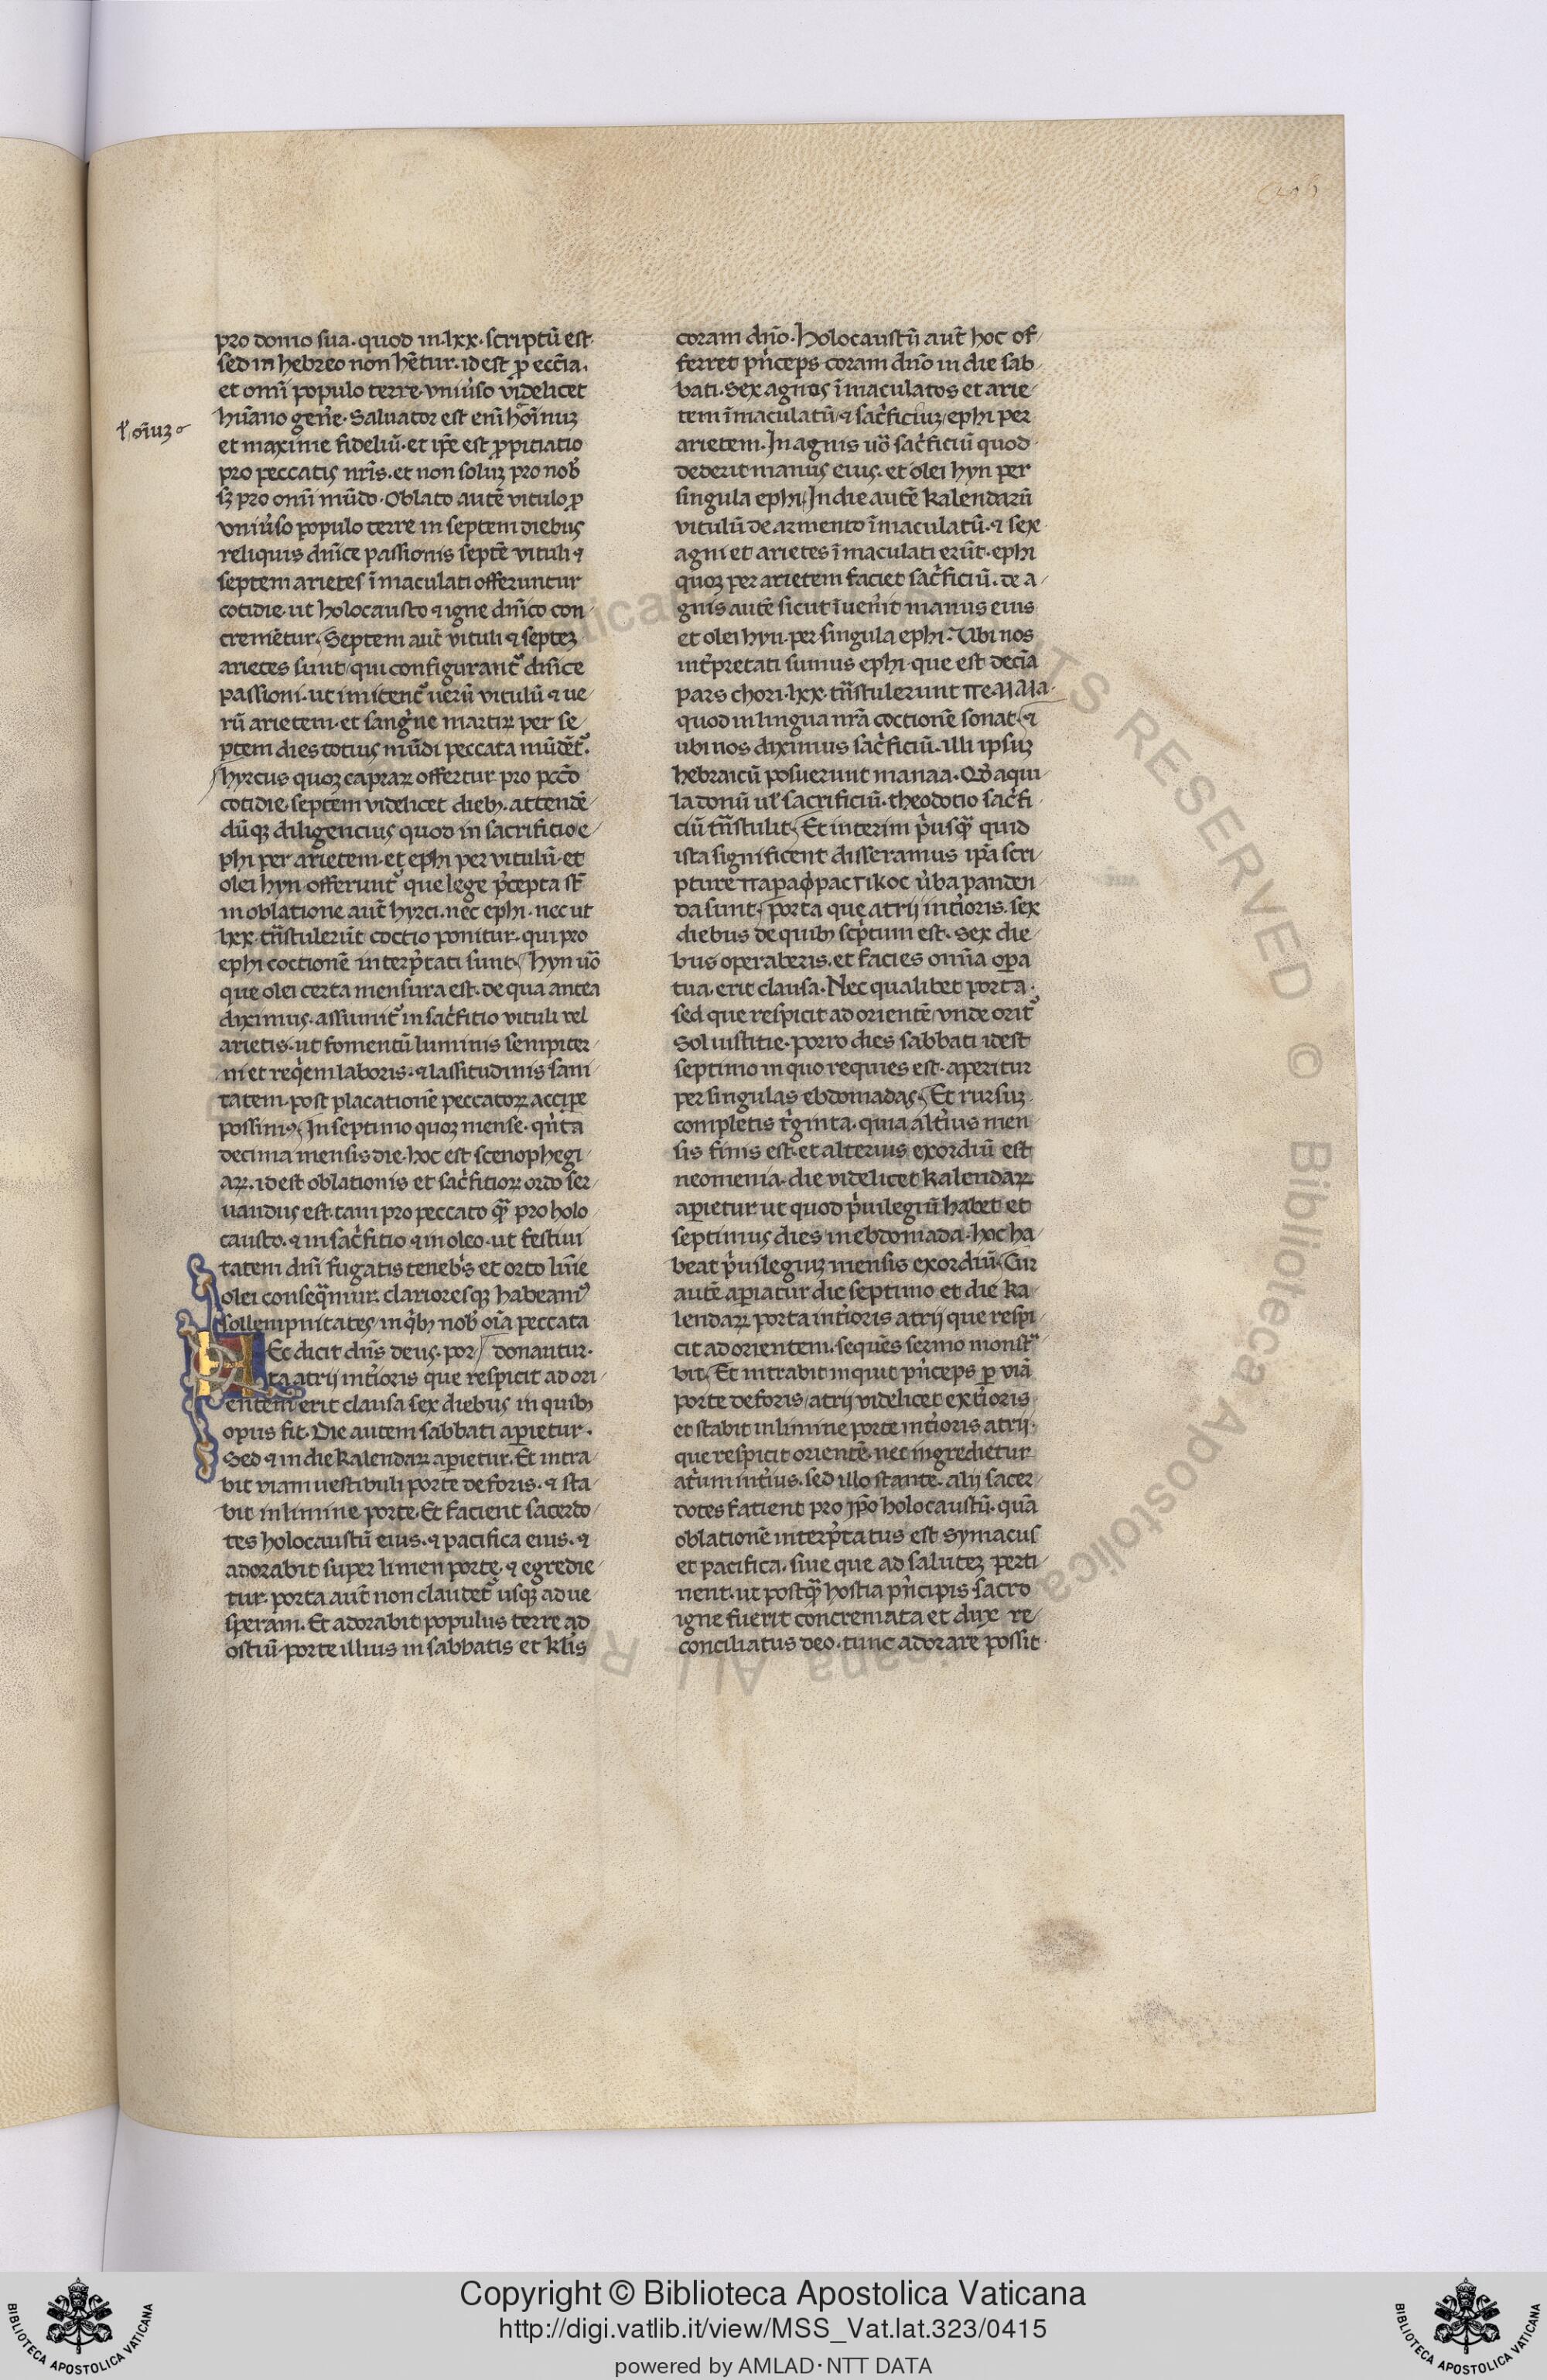 pro domo sua. quod in .lxx. scriptū est.
sed in hebreo non hētur. id est ꝓ eccīa.
et omī populo terre. vniṽso videlicet
huāno geñe. Saluator est enī hoīnuꝫ
ł oīuꝫ
et maxime fideliū. et ip̄e est ꝓpitiatio
pro peccatis nrīs. et non soluꝫ pro nob̾
sꝫ pro omī mūdo. Oblato autē vitulo ꝓ
vniṽso populo terre in septem diebus
reliquis dnīce passionis septē vituli ⁊
septem arietes īmaculati offeruntur
cotidie. ut holocausto ⁊ igne dnīco con-
cremētur. Septem aut̄ vituli ⁊ septeꝫ
arietes sunt/ qui configurantᷣ dnīce
passioni. ut imitentᷣ uerū vitulū ⁊ ue-
rū arietem. et sangͥne martiꝝ per se-
ptem dies totius mūdi peccata mūdētᷣ.
hyrcus quoꝫ capraꝝ offertur pro pccō
cotidie. septem videlicet dieb;. attendē-
dūqꝫ diligencius quod in sacrificio e-
phi per arietem. et ephi per vitulū. et
olei hyn offeruntᷣ que lege p̄cepta st̄
in oblatione aut̄ hyrci. nec ephi. nec ut
lxx. tn̄stulerūt coctio ponitur. qui pro
ephi coctionē interp̄tati sunt. Hyn uō
que olei certa mensura est. de qua antea
diximus. assumitᷣ in sacͥfitio vituli vel
arietis. ut fomentū luminis sempiter-
ni et reqͥem laboris. ⁊ lassitudinis sani-
tatem. post placationē peccatoꝝ accipe
possimꝰ. In septimo quoꝫ mense. qͥnta
decima mensis die. hoc est scenophegi-
aꝝ. id est oblationis et sacͥfitioꝝ ordo ser-
uandus est. tam pro peccato qᷓ pro holo-
causto. ⁊ in sacͥfitio ⁊ in oleo. ut festiui-
tatem dn̄i fugatis teneb̾s et orto lum̄e
olei conseqᷓmur. clarioresqꝫ habeamꝰ
sollempnitates in qͥb; nob̾ oīa peccata
Hec dicit dn̄s deus. por- donantur.
ta atrij intͥoris que respicit ad ori-
entem erit clausa sex diebus in quib;
opus fit. Die autem sabbati aꝑietur.
Sed ⁊ in die kalendaꝝ aꝑietur. Et intra-
bit viam uestibuli porte deforis. ⁊ sta-
bit in limine porte. Et facient sacerdo-
tes holocaustū eius. ⁊ pacifica eius. ⁊
adorabit super limen porte. ⁊ egredie-
tur. porta aut̄ non claudetᷣ usqꝫ ad ue-
speram. Et adorabit populus terre ad
ostiū porte illius in sabbatis et kl̄is
coram dn̄o. Holocaustū aut̄ hoc of-
ferret pͥnceps coram dn̄o in die sab-
bati. Sex agnos īmaculatos et arie-
tem īmaculatū. ⁊ sacͥficiuꝫ/ ephi per
arietem. In agnis uō sacͥficiū quod
dederit manus eius. et olei hyn per
singula ephi. In die autē kalendarū
vitulū de armento īmaculatū. ⁊ sex
agni et arietes īmaculati erūt. ephi
quoꝫ per arietem faciet sacͥficiū. de a-
gnis autē sicut īueñit manus eius
et olei hyn per singula ephi. Ubi nos
int̾pretati sumus ephi. que est decīa
pars chori. lxx. tn̄stulerunt
quod in lingua nrā coctionē sonat. ⁊
ubi nos diximus sacͥficiū. illi ipsuꝫ
hebraicū posuerunt manaa. Qd̄ aqui-
la donū uł sacrificiū. theodotio sacͥfi-
ciū tn̄stulit. Et interim pͥusqᷓ quid
ista significent disseramus ipā scri-
pture παραφραϲτικοϲ ṽba panden-
da sunt. porta que atrij intͥoris. sex
diebus de quib; scp̄tum est. Sex die-
bus operaberis. et facies omīa oꝑa
tua. erit clausa. Nec qualibet porta.
sed que respicit ad orientē/ vnde oritᷣ
Sol iustitie. porro dies sabbati idest
septimo in quo requies est. aperitur
per singulas ebdomadas. Et rursuꝫ
completis tͥginta. quia altͥius men-
sis finis est. et alterius exordiū est
neomenia. die videlicet kalendaꝝ
aꝑietur ut quod pͥuilegiū habet et
septimus dies in ebdomada. hoc ha-
beat pͥuilegiuꝫ mensis exordiū. Cur
autē aꝑiatur die septimo et die ka-
lendaꝝ porta intͥoris atrij que respi-
cit ad orientem. sequēs sermo monstᷓ-
bit. Et intrabit inquit pͥnceps ꝑ viā
porte deforis/ atrij videlicet extͥoris
et stabit in limine porte intͥoris atrij.
que respicit orientē. nec ingredietur
atͥum intͥius. sed illo stante. alij sacer-
dotes fatient pro ip̄o holocaustū. quā
oblationē interp̄tatus est Symacus
et pacifica. siue que ad saluteꝫ perti-
nent. ut postqᷓ hostia pͥncipis sacro
igne fuerit concremata et dux re-
conciliatus deo. tunc adorare possit
Copyright © Biblioteca Apostolica Vaticana
http://digi.vatlib.it/view/MSS_Vat.lat.323/0415
powered by AMLAD·NTT DATA
BIBLIOTECA APOSTOLICA VATICANA
BIBLIOTECA APOSTOLICA VATICANA